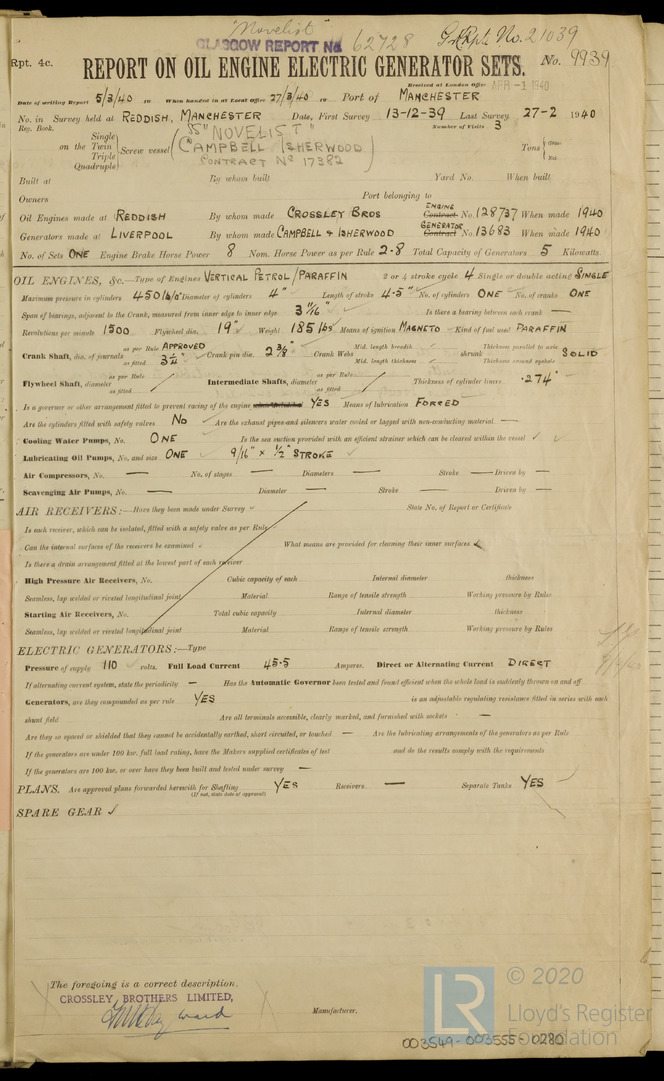 "Novelist"
GLASGOW REPORT No 62728 Rpt. No. 21039
Rpt. 4c. REPORT ON OIL ENGINE ELECTRIC GENERATOR SETS. No. 9939
Received at London Office APR -1 1940
Date of writing Report 5/3/40 When handed in at Local Office 27/3/40 Port of MANCHESTER
No. in Reg. Book. Survey held at REDDISH, MANCHESTER Date, First Survey 13-12-39 Last Survey 27-2 1940
Number of Visits 3
on the Single Twin Triple Quadruple Screw vessel SS "NOVELIST" CAMPBELL ISHERWOOD CONTRACT No 17382 Tons
Built at By whom built Yard No. When built
Owners Port belonging to
Oil Engines made at REDDISH By whom made CROSSLEY BROS ENGINE Contract No. 128737 When made 1940
Generators made at LIVERPOOL By whom made CAMPBELL & ISHERWOOD GENERATOR Contract No. 13683 When made 1940
No. of Sets ONE Engine Brake Horse Power 8 Nom. Horse Power as per Rule 2.8 Total Capacity of Generators 5 Kilowatts.
OIL ENGINES, &c.—Type of Engines VERTICAL PETROL/PARAFFIN 2 or 4 stroke cycle 4 Single or double acting SINGLE
Maximum pressure in cylinders 450 lb/□" Diameter of cylinders 4" Length of stroke 4.5" No. of cylinders ONE No. of cranks ONE
Span of bearings, adjacent to the Crank, measured from inner edge to inner edge 3 11/16" Is there a bearing between each crank —
Revolutions per minute 1500 Flywheel dia. 19" Weight 185 lbs Means of ignition MAGNETO Kind of fuel used PARAFFIN
Crank Shaft, dia. of journals as per Rule APPROVED as fitted 3¼" Crank pin dia. 2 3/8" Crank Webs Mid. length breadth Mid. length thickness shrunk Thickness parallel to axis Thickness around eyehole SOLID
Flywheel Shaft, diameter as per Rule as fitted Intermediate Shafts, diameter as per Rule as fitted Thickness of cylinder liners .274"
Is a governor or other arrangement fitted to prevent racing of the engine YES Means of lubrication FORCED
Are the cylinders fitted with safety valves NO Are the exhaust pipes and silencers water cooled or lagged with non-conducting material —
Cooling Water Pumps, No. ONE Is the sea suction provided with an efficient strainer which can be cleared within the vessel ✓
Lubricating Oil Pumps, No. and size ONE 9/16" × ½" STROKE
Air Compressors, No. — No. of stages — Diameters — Stroke — Driven by —
Scavenging Air Pumps, No. — Diameter — Stroke — Driven by —
AIR RECEIVERS:—Have they been made under Survey State No. of Report or Certificate
Is each receiver, which can be isolated, fitted with a safety valve as per Rule
Can the internal surfaces of the receivers be examined What means are provided for cleaning their inner surfaces
Is there a drain arrangement fitted at the lowest part of each receiver
High Pressure Air Receivers, No. Cubic capacity of each Internal diameter thickness
Seamless, lap welded or riveted longitudinal joint Material Range of tensile strength Working pressure by Rules
Starting Air Receivers, No. Total cubic capacity Internal diameter thickness
Seamless, lap welded or riveted longitudinal joint Material Range of tensile strength Working pressure by Rules
ELECTRIC GENERATORS:—Type
Pressure of supply 110 volts. Full Load Current 45.5 Amperes. Direct or Alternating Current DIRECT
If alternating current system, state the periodicity — Has the Automatic Governor been tested and found efficient when the whole load is suddenly thrown on and off
Generators, are they compounded as per rule YES is an adjustable regulating resistance fitted in series with each
shunt field Are all terminals accessible, clearly marked, and furnished with sockets —
Are they so spaced or shielded that they cannot be accidentally earthed, short circuited, or touched — Are the lubricating arrangements of the generators as per Rule
If the generators are under 100 kw. full load rating, have the Makers supplied certificates of test and do the results comply with the requirements
If the generators are 100 kw. or over have they been built and tested under survey —
PLANS. Are approved plans forwarded herewith for Shafting YES Receivers — Separate Tanks YES
(If not, state date of approval)
SPARE GEAR ✓
The foregoing is a correct description.
CROSSLEY BROTHERS LIMITED,
Manufacturer.
LR © 2020
Lloyd's Register
Foundation
003549-003555-0280